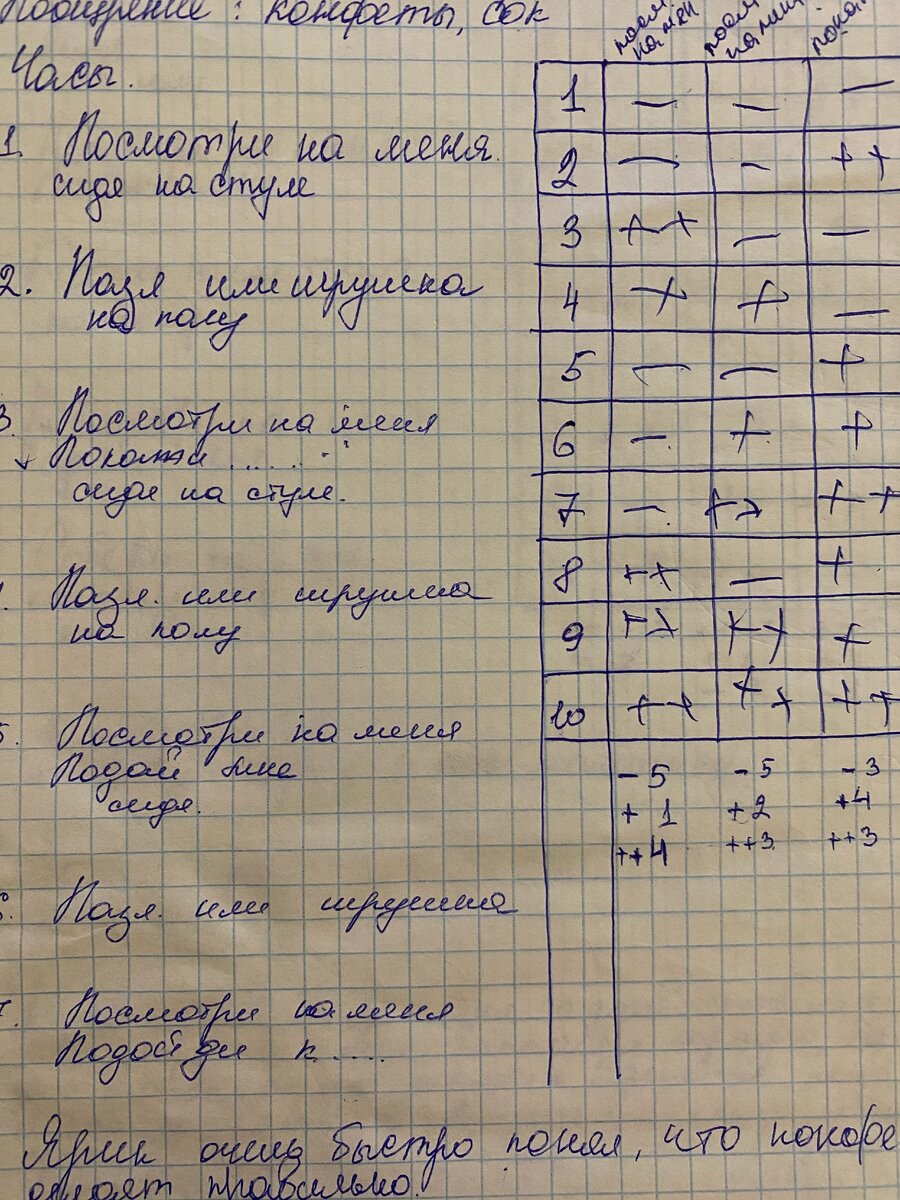 Поощрение: конфеты, сок
Часы.
1. Посмотри на меня.
сидя на стуле
2. Пазл или игрушка
на полу
3. Посмотри на меня
+ Покажи ........
сидя на стуле.
Пазл. или игрушка
на полу
Посмотри на меня
Подай мне
сидя.
Пазл. или игрушка
Посмотри на меня
Подойди к .....
1 — — —
2 — — ++
3 ++ — —
4 + + —
5 — — +
6 — + +
7 — ++ ++
8 ++ — +
9 ++ ++ +
10 ++ ++ ++
-5 -5 -3
+1 +2 +4
++4 ++3 ++3
Ярик очень быстро понял, что
правильно.